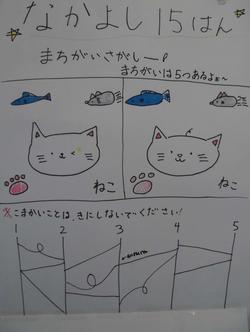 なかよし15はん
まちがいさがしー!
まちがいは5つあるよぉ~
ねこ ねこ
※こまかいことは、きにしないでください!
1 2 3 4 5